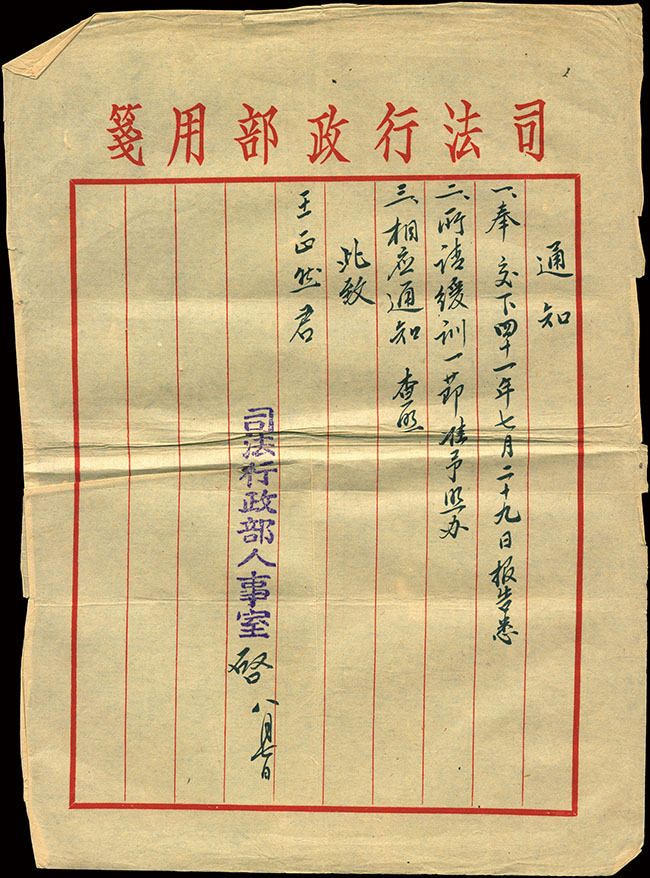 司法行政部用箋
通知
一、奉 交下四十一年七月二十九日报告悉
二、所请缓训一节准予照办
三、相应通知 查照
此致
王正然君
司法行政部人事室 启 八月七日